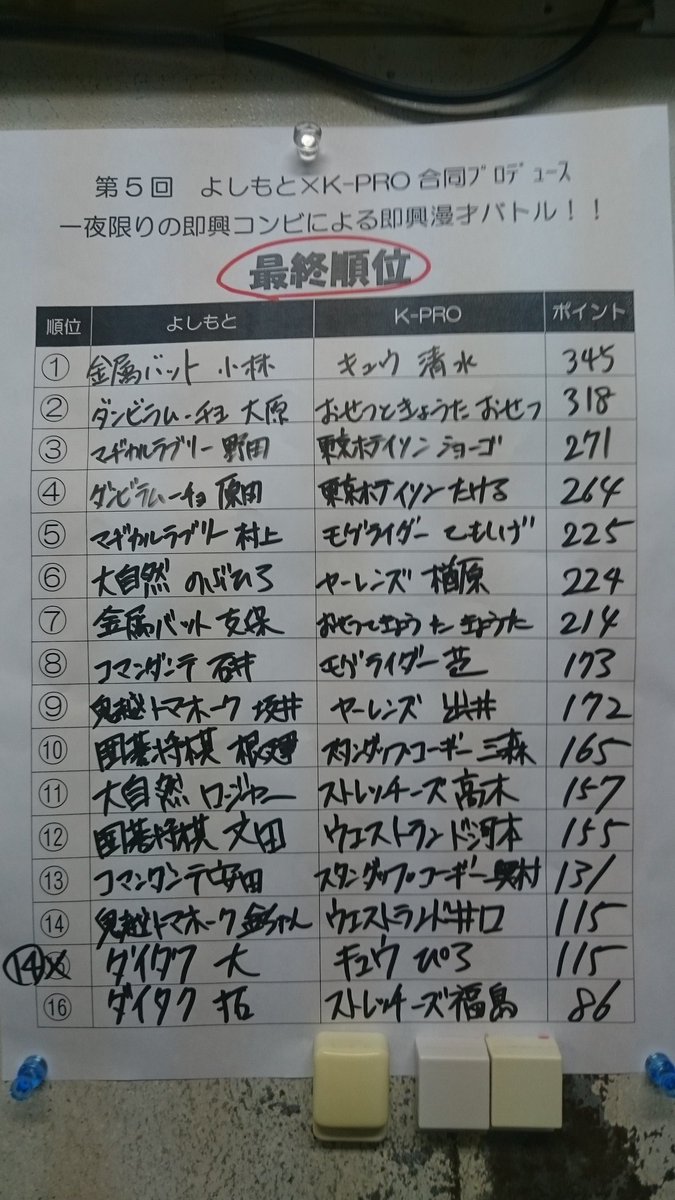 第5回 よしもと×K-PRO 合同ﾌﾟﾛﾃﾞｭｰｽ
一夜限りの即興コンビによる即興漫才バトル！！
最終順位
順位 よしもと K-PRO ポイント
① 金属バット 小林 キュウ 清水 345
② ダンビラムーチョ 大原 おせつときょうた おせつ 318
③ マヂカルラブリー 野田 東京ホテイソン ショーゴ 271
④ ダンビラムーチョ 原田 東京ホテイソン たける 264
⑤ マヂカルラブリー 村上 モグライダー ともしげ 225
⑥ 大自然 のぶひろ ヤーレンズ 楢原 224
⑦ 金属バット 友保 おせつときょうた きょうた 214
⑧ コマンダンテ 石井 モグライダー 芝 173
⑨ 鬼越トマホーク 坂井 ヤーレンズ 出井 172
⑩ 囲碁将棋 根建 スタンダップコーギー 三森 165
⑪ 大自然 ロジャー ストレッチーズ 高木 157
⑫ 囲碁将棋 文田 ウエストランド 河本 155
⑬ コマンダンテ 安田 スタンダップ・コーギー 奥村 131
⑭ 鬼越トマホーク 金ちゃん ウエストランド 井口 115
⑭ ダイタク 大 キュウ ぴろ 115
⑯ ダイタク 拓 ストレッチーズ 福島 86